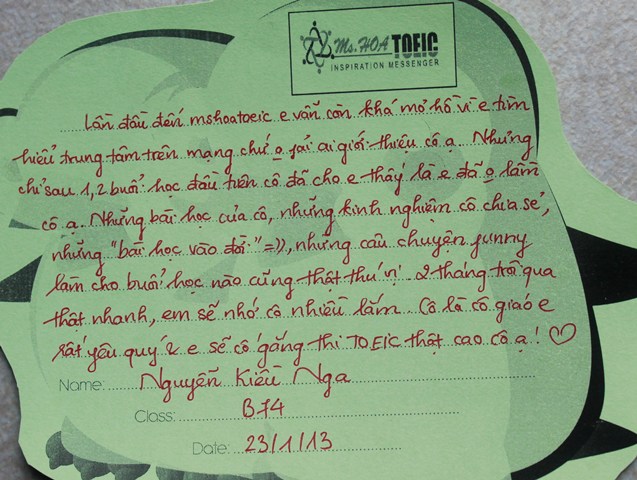 Ms. HOA TOEIC
INSPIRATION MESSENGER
Lần đầu đến mshoatoeic e vẫn còn khá mơ hồ vì e tìm
hiểu trung tâm trên mạng chứ o fải ai giới thiệu cô ạ. Nhưng
chỉ sau 1, 2 buổi học đầu tiên cô đã cho e thấy là e đã o lầm
cô ạ. Những bài học của cô, những kinh nghiệm cô chia sẻ,
những "bài học vào đời" =)), những câu chuyện funny
làm cho buổi học nào cũng thật thú vị. 2 tháng trôi qua
thật nhanh, em sẽ nhớ cô nhiều lắm. Cô là cô giáo e
rất yêu quý & e sẽ cố gắng thi TOEIC thật cao cô ạ! ♡
Name: Nguyễn Kiều Nga
Class: B74
Date: 23/1/13